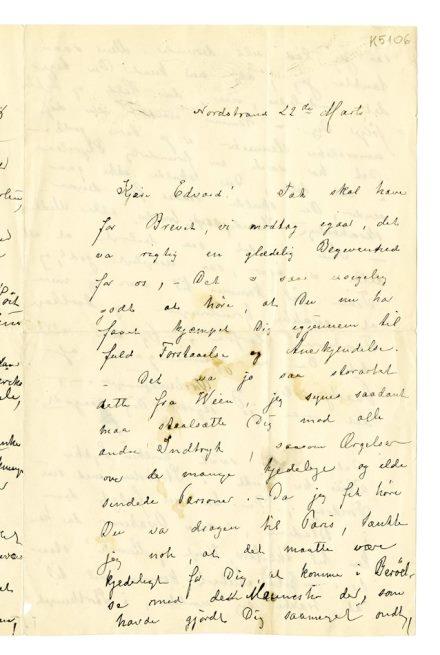 K5106
Nordstrand 22de Marts
Kjære Edvard! Tak skal have
for Brevet, vi modtog igaar, det
va rigtig en glædelig Begivenhed
for os, – Det saa
godt at höre, at Du nu har
faaet kjæmpet Dig igjennem til
fuld Forstaaelse og Anerkjendelse.
– Det va jo saa storartet
dette fra Wien, jeg synes saadant
maa staalsætte Dig mod alle
andre Indtryk, saasom Ærgelser
over de mange kjedelige og ilde
sindede Personer. – Da jeg fik höre
Du va dragen til Paris, tænkte
jeg nok, at det maatte være
kjedeligt for Dig, at komme i Berör-
se med de Mennesker der, som
havde gjördt Dig saameget ondt,